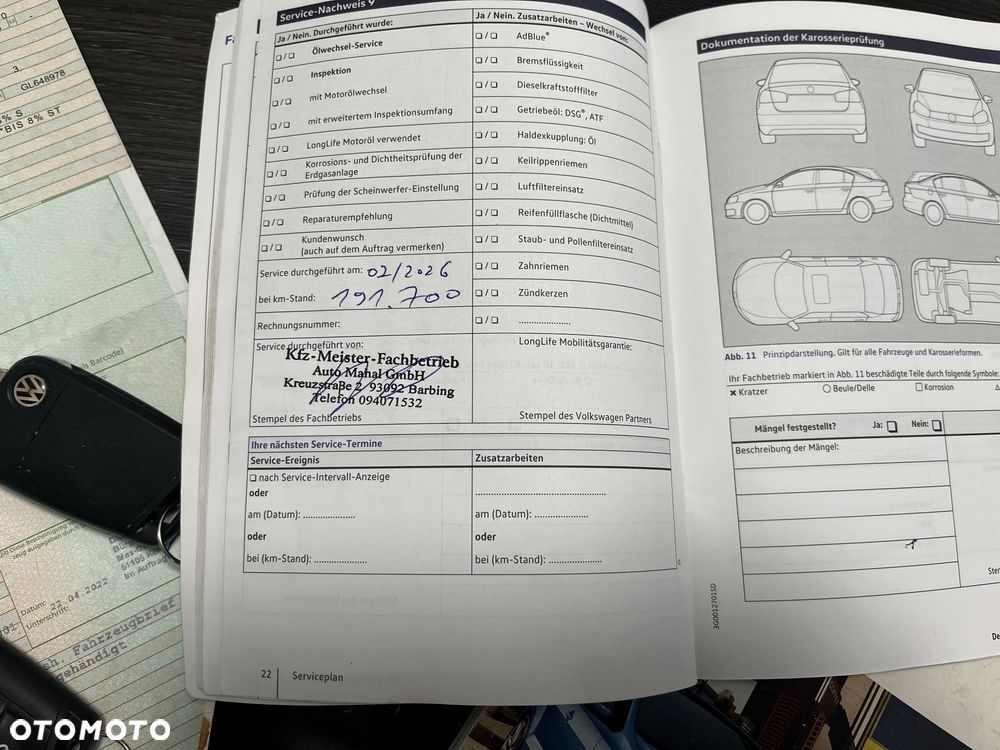 3
GL648978
% S
*BIS 8% ST
Barcode)
Datum: 22.04.2022
Unterschrift:
Im Auftrag
Fahrzeugbrief
Service-Nachweis 9
Ja / Nein. Durchgeführt wurde:
Ja / Nein. Zusatzarbeiten – Wechsel von:
Ölwechsel-Service
Inspektion
mit Motorölwechsel
mit erweitertem Inspektionsumfang
LongLife Motoröl verwendet
Korrosions- und Dichtheitsprüfung der
Erdgasanlage
Prüfung der Scheinwerfer-Einstellung
Reparaturempfehlung
Kundenwunsch
(auch auf dem Auftrag vermerken)
AdBlue®
Bremsflüssigkeit
Dieselkraftstofffilter
Getriebeöl: DSG®, ATF
Haldexkupplung: Öl
Keilrippenriemen
Luftfiltereinsatz
Reifenfüllflasche (Dichtmittel)
Staub- und Pollenfiltereinsatz
Zahnriemen
Zündkerzen
.....................
Service durchgeführt am: 02/2026
bei km-Stand: 191.700
Rechnungsnummer:
Service durchgeführt von:
Kfz-Meister-Fachbetrieb
Auto Mahal GmbH
Kreuzstraße 2 93092 Barbing
Telefon 094071532
Stempel des Fachbetriebs
LongLife Mobilitätsgarantie:
Stempel des Volkswagen Partners
Ihre nächsten Service-Termine
Service-Ereignis
Zusatzarbeiten
nach Service-Intervall-Anzeige
oder
am (Datum): .....................
oder
bei (km-Stand): .....................
am (Datum): .....................
oder
bei (km-Stand): .....................
22
Serviceplan
Dokumentation der Karosserieprüfung
Abb. 11 Prinzipdarstellung. Gilt für alle Fahrzeuge und Karosserieformen.
Ihr Fachbetrieb markiert in Abb. 11 beschädigte Teile durch folgende Symbole:
Kratzer
Beule/Delle
Korrosion
Mängel festgestellt?
Ja:
Nein:
Beschreibung der Mängel:
3G0012701SD
OTOMOTO